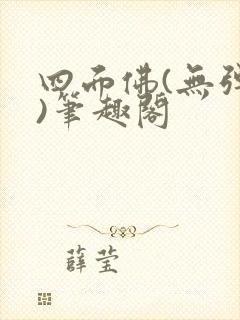 四而佛(無彈
)筆趣閣
薛莹